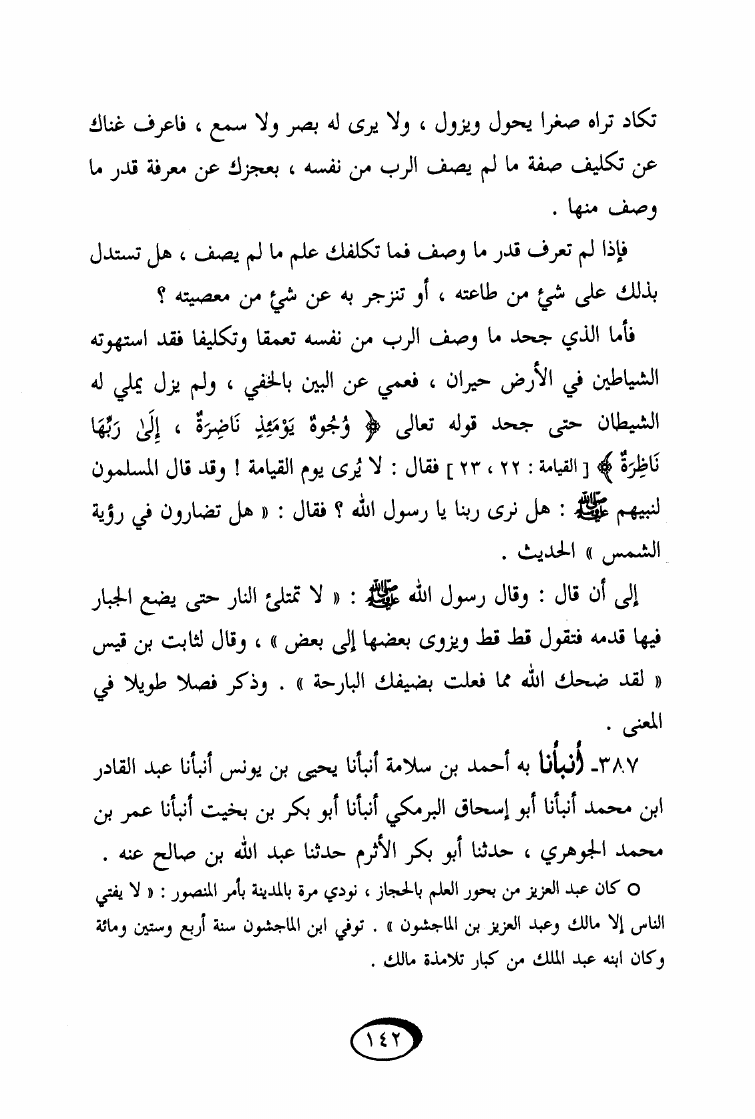 تكاد تراه صغرا يحول ويزول ، ولا يرى له بصر ولا سمع ، فاعرف غناك
عن تكليف صفة ما لم يصف الرب من نفسه ، بعجزك عن معرفة قدر ما
وصف منها .
فإذا لم تعرف قدر ما وصف فما تكلفك علم ما لم يصف ، هل تستدل
بذلك على شئ من طاعته ، أو تنزجر به عن شئ من معصيته ؟
فأما الذي جحد ما وصف الرب من نفسه تعمقا وتكليفا فقد استهوته
الشياطين في الأرض حيران ، فعمي عن البين بالخفي ، ولم يزل يملي له
الشيطان حتى جحد قوله تعالى ﴿ وُجُوهٌ يَوْمَئِذٍ نَاضِرَةٌ ، إِلَىٰ رَبِّهَا
نَاظِرَةٌ ﴾ [ القيامة : ٢٢ ، ٢٣ ] فقال : لا يُرى يوم القيامة ! وقد قال المسلمون
لنبيهم ﷺ : هل نرى ربنا يا رسول الله ؟ فقال : « هل تضارون في رؤية
الشمس » الحديث .
إلى أن قال : وقال رسول الله ﷺ : « لا تمتلئ النار حتى يضع الجبار
فيها قدمه فتقول قط قط ويزوى بعضها إلى بعض » ، وقال لثابت بن قيس
« لقد ضحك الله مما فعلت بضيفك البارحة » . وذكر فصلا طويلا في
المعنى .
٣٨٧ـ أنبأنا به أحمد بن سلامة أنبأنا يحيى بن يونس أنبأنا عبد القادر
ابن محمد أنبأنا أبو إسحاق البرمكي أنبأنا أبو بكر بن بخيت أنبأنا عمر بن
محمد الجوهري ، حدثنا أبو بكر الأثرم حدثنا عبد الله بن صالح عنه .
○ كان عبد العزيز من بحور العلم بالحجاز ، نودي مرة بالمدينة بأمر المنصور : « لا يفتي
الناس إلا مالك وعبد العزيز بن الماجشون » . توفي ابن الماجشون سنة أربع وستين ومائة
وكان ابنه عبد الملك من كبار تلامذة مالك .
١٤٢